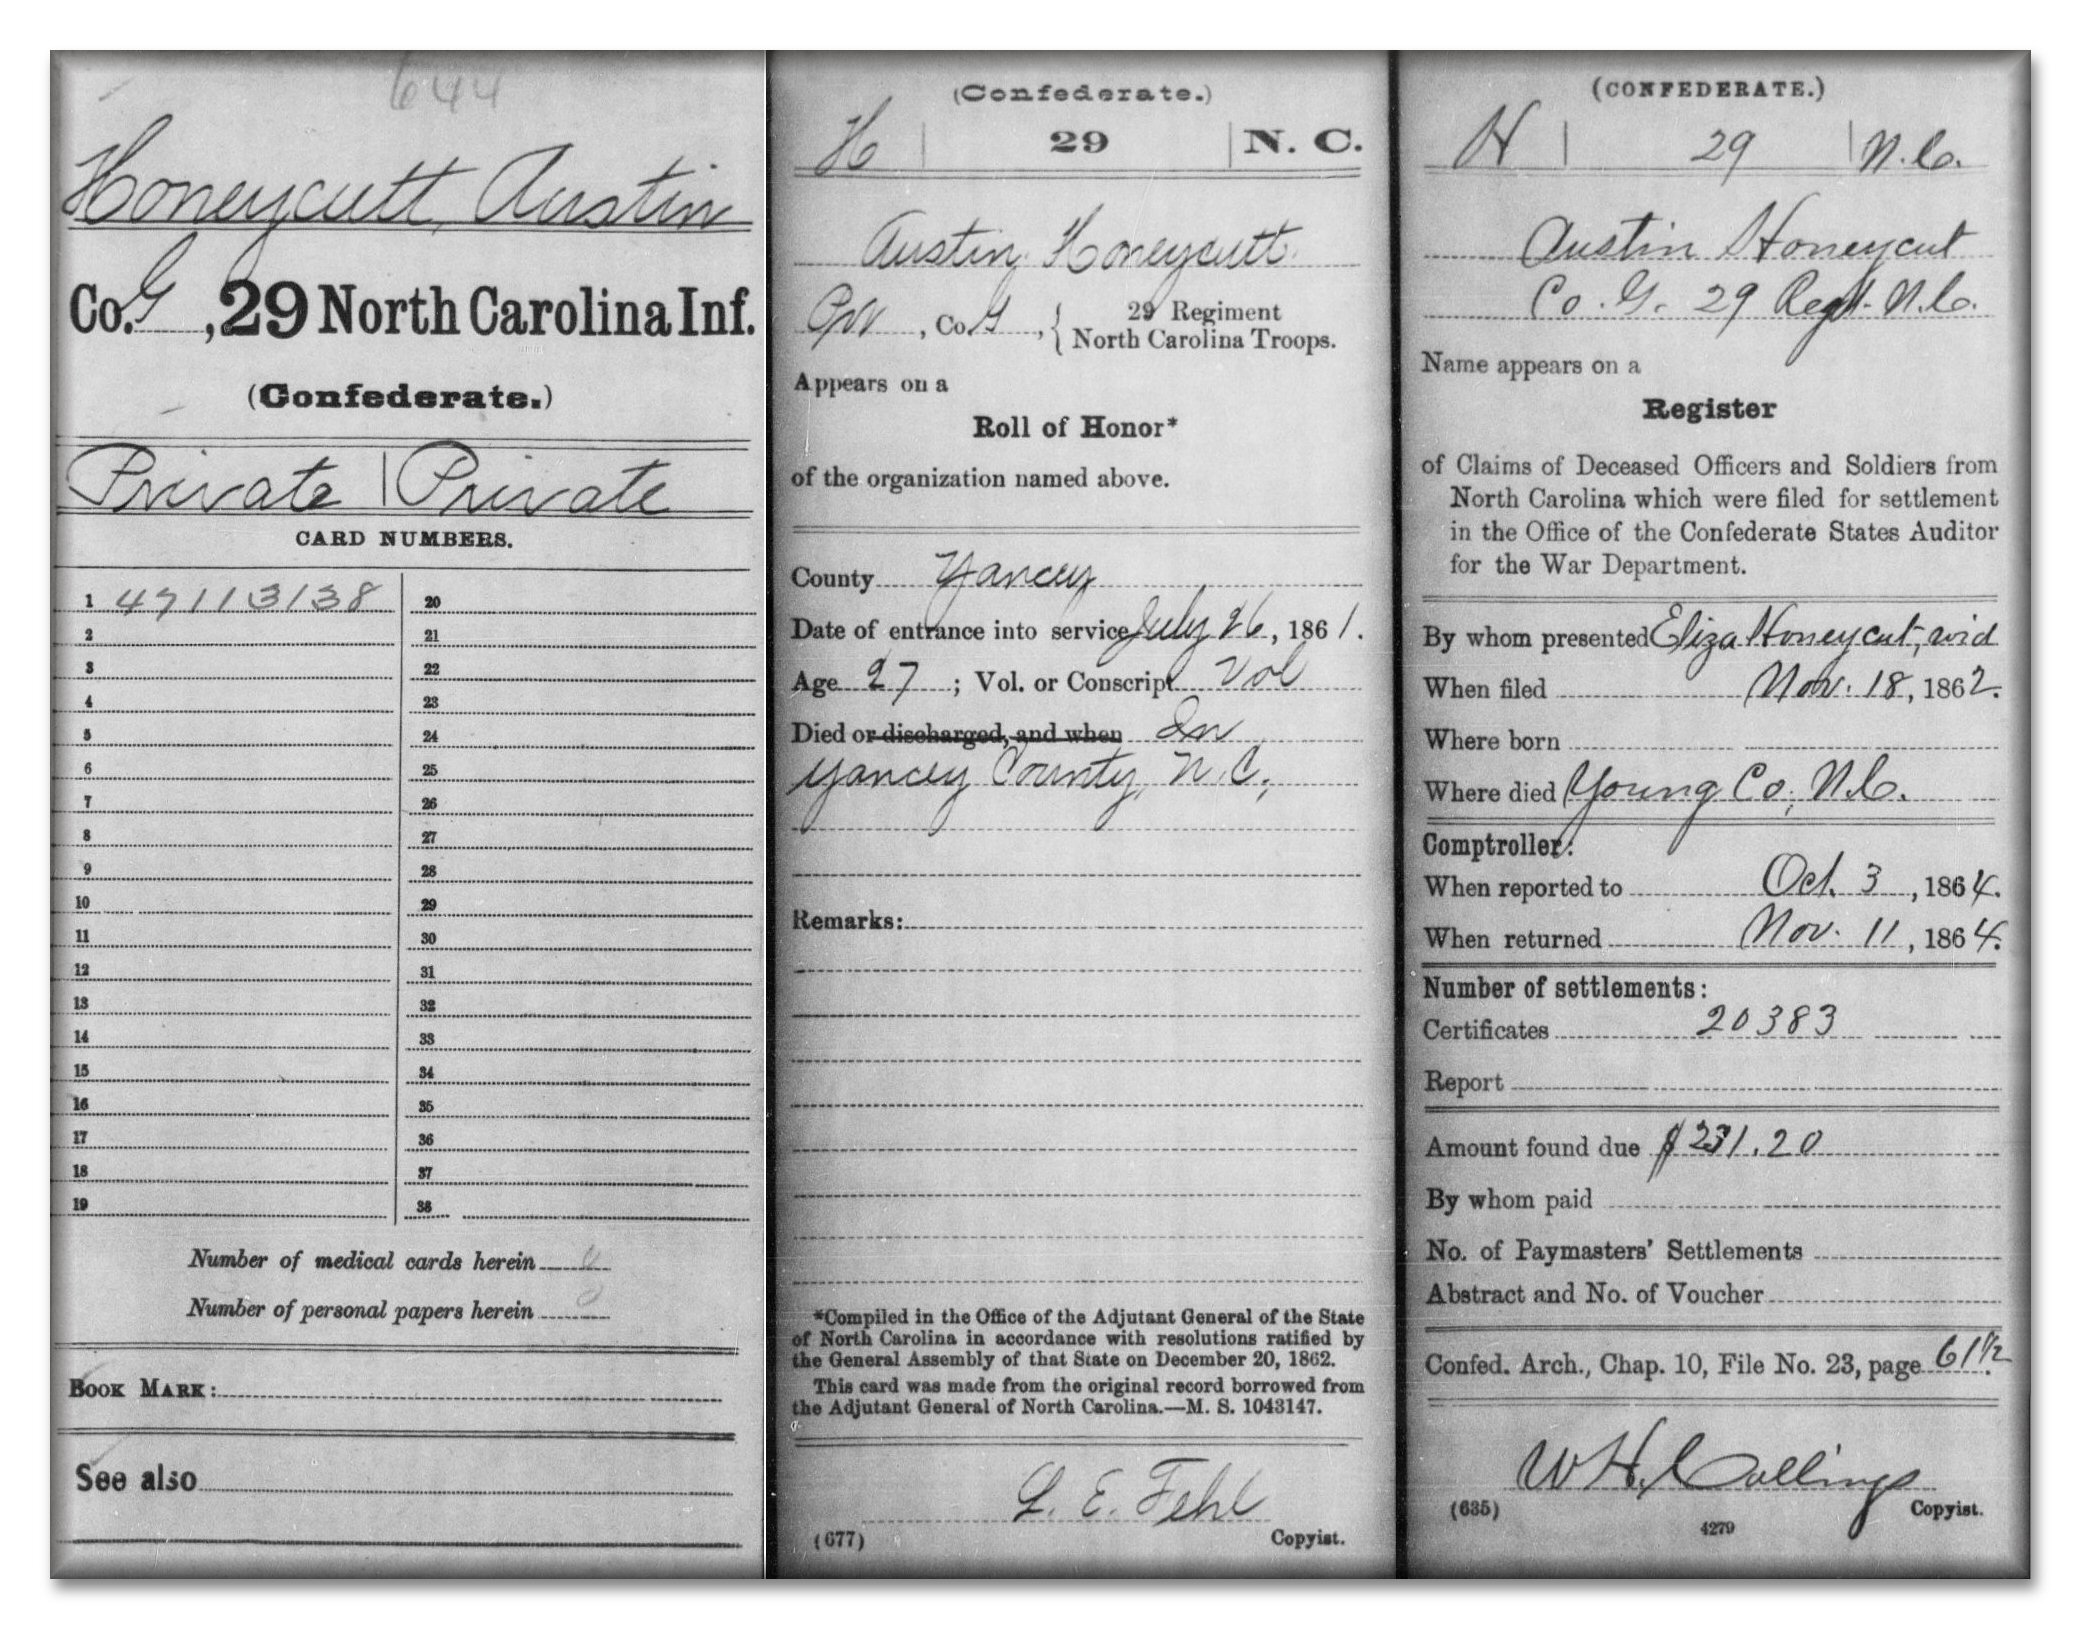 644
Honeycutt, Austin
Co. G, 29 North Carolina Inf.
(Confederate.)
Private | Private
CARD NUMBERS.
1 47113138
2
3
4
5
6
7
8
9
10
11
12
13
14
15
16
17
18
19
20
21
22
23
24
25
26
27
28
29
30
31
32
33
34
35
36
37
38
Number of medical cards herein 0
Number of personal papers herein 0
BOOK MARK:
See also
(Confederate.)
H | 29 | N. C.
Austin Honeycutt
Pvt, Co. G, { 29 Regiment
North Carolina Troops.
Appears on a
Roll of Honor*
of the organization named above.
County Yancey
Date of entrance into service July 26, 1861.
Age 27; Vol. or Conscript Vol
Died or discharged, and when In
Yancey County, N.C.,
Remarks:
*Compiled in the Office of the Adjutant General of the State
of North Carolina in accordance with resolutions ratified by
the General Assembly of that State on December 20, 1862.
This card was made from the original record borrowed from
the Adjutant General of North Carolina.—M. S. 1043147.
L. E. Fehl
(677) Copyist.
(CONFEDERATE.)
H | 29 | N.C.
Austin Honeycut
Co. G. 29 Regt. N.C.
Name appears on a
Register
of Claims of Deceased Officers and Soldiers from
North Carolina which were filed for settlement
in the Office of the Confederate States Auditor
for the War Department.
By whom presented Eliza Honeycut, wid
When filed Nov. 18, 1862.
Where born
Where died Young Co, N.C.
Comptroller:
When reported to Oct. 3, 1864.
When returned Nov. 11, 1864.
Number of settlements:
Certificates 20383
Report
Amount found due $231.20
By whom paid
No. of Paymasters' Settlements
Abstract and No. of Voucher
Confed. Arch., Chap. 10, File No. 23, page 61 1/2
W H Collings
(635) Copyist.
4279